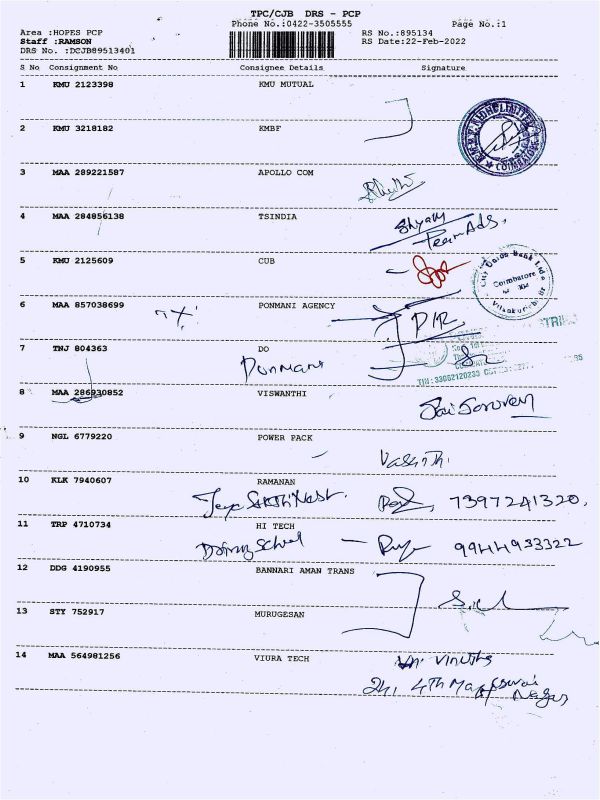 TPC/CJB DRS - PCP
Phone No.:0422-3505555
Page No.:1
Area :HOPES PCP
RS No.:895134
Staff :RAMSON
RS Date:22-Feb-2022
DRS No. :DCJB89513401
S No Consignment No Consignee Details Signature
1 KMU 2123398 KMU MUTUAL
2 KMU 3218182 KMBF
3 MAA 289221587 APOLLO COM
4 MAA 284856138 TSINDIA
Shyam
Team Ads.
5 KMU 2125609 CUB
City Union Bank Ltd
Coimbatore
6 MAA 857038699 PONMANI AGENCY
DIR
7 TNJ 804363 DO
Ponmani
TIN: 33052120233
8 MAA 286930852 VISWANTHI
Sai Saravan
9 NGL 6779220 POWER PACK
Vasanthi
10 KLK 7940607 RAMANAN
7397241320
11 TRP 4710734 HI TECH
School 9944933322
12 DDG 4190955 BANNARI AMAN TRANS
13 STY 752917 MURUGESAN
14 MAA 564981256 VIURA TECH
4th
Nagar